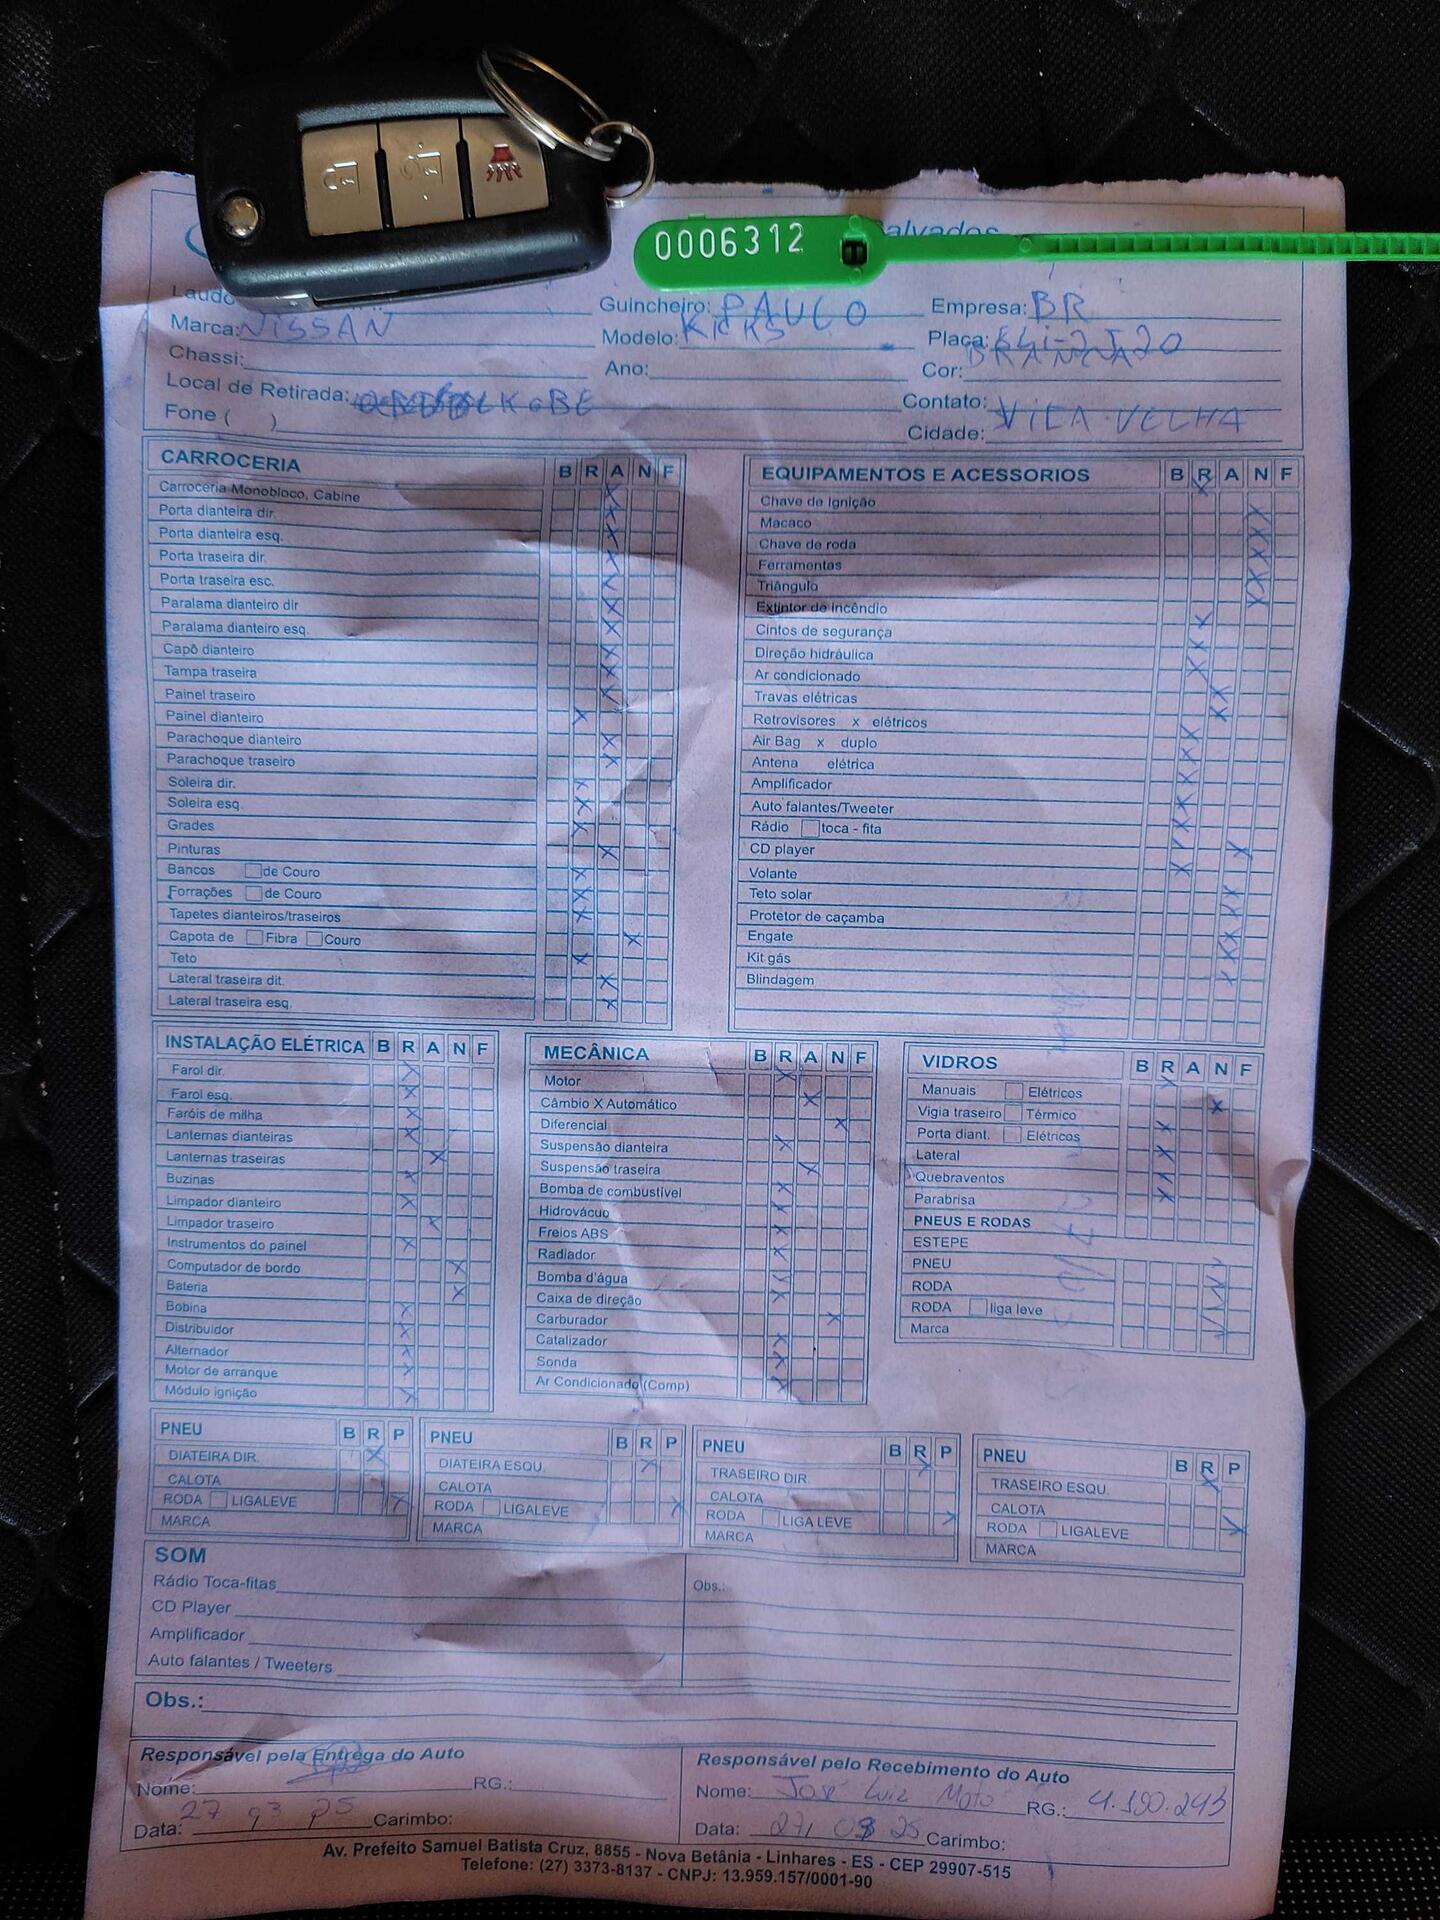 0006312
alvados
Laudo
Guincheiro: PAULO Empresa: BR
Marca: NISSAN Modelo: KICKS Placa:
Chassi: Ano: Cor: BRANCA
Local de Retirada: KOBE Contato:
Fone ( ) Cidade: VILA VELHA
CARROCERIA B R A N F
Carroceria Monobloco, Cabine X
Porta dianteira dir. X
Porta dianteira esq. X
Porta traseira dir. X
Porta traseira esc. X
Paralama dianteiro dir X
Paralama dianteiro esq. X
Capô dianteiro X
Tampa traseira X
Painel traseiro X
Painel dianteiro X
Parachoque dianteiro X
Parachoque traseiro X
Soleira dir. X
Soleira esq. X
Grades X
Pinturas X
Bancos de Couro X
Forrações de Couro X
Tapetes dianteiros/traseiros X
Capota de Fibra Couro X
Teto X
Lateral traseira dit. X
Lateral traseira esq. X
EQUIPAMENTOS E ACESSORIOS B R A N F
Chave de Ignição X
Macaco X
Chave de roda X
Ferramentas X
Triângulo X
Extintor de incêndio X
Cintos de segurança X
Direção hidráulica X
Ar condicionado X
Travas elétricas X
Retrovisores x elétricos X
Air Bag x duplo X
Antena elétrica X
Amplificador X
Auto falantes/Tweeter X
Rádio toca - fita X
CD player X
Volante X
Teto solar X
Protetor de caçamba X
Engate X
Kit gás X
Blindagem X
INSTALAÇÃO ELÉTRICA B R A N F
Farol dir. X
Farol esq. X
Faróis de milha X
Lanternas dianteiras X
Lanternas traseiras X
Buzinas X
Limpador dianteiro X
Limpador traseiro X
Instrumentos do painel X
Computador de bordo X
Bateria X
Bobina X
Distribuidor X
Alternador X
Motor de arranque X
Módulo ignição X
MECÂNICA B R A N F
Motor X
Câmbio X Automático X
Diferencial X
Suspensão dianteira X
Suspensão traseira X
Bomba de combustível X
Hidrovácuo X
Freios ABS X
Radiador X
Bomba d'água X
Caixa de direção X
Carburador X
Catalizador X
Sonda X
Ar Condicionado (Comp) X
VIDROS B R A N F
Manuais Elétricos X
Vigia traseiro Térmico X
Porta diant. Elétricos X
Lateral X
Quebraventos X
Parabrisa X
PNEUS E RODAS
ESTEPE
PNEU
RODA
RODA liga leve
Marca
PNEU B R P
DIATEIRA DIR. X
CALOTA
RODA LIGALEVE X
MARCA
PNEU B R P
DIATEIRA ESQU. X
CALOTA
RODA LIGALEVE X
MARCA
PNEU B R P
TRASEIRO DIR. X
CALOTA
RODA LIGA LEVE X
MARCA
PNEU B R P
TRASEIRO ESQU. X
CALOTA
RODA LIGALEVE X
MARCA
SOM
Rádio Toca-fitas
CD Player
Amplificador
Auto falantes / Tweeters
Obs.:
Obs.:
Responsável pela Entrega do Auto
Nome: RG.:
Data: 27 03 25 Carimbo:
Responsável pelo Recebimento do Auto
Nome: José Luiz RG.: 4.190.243
Data: 27, 03 25 Carimbo:
Av. Prefeito Samuel Batista Cruz, 8855 - Nova Betânia - Linhares - ES - CEP 29907-515
Telefone: (27) 3373-8137 - CNPJ: 13.959.157/0001-90